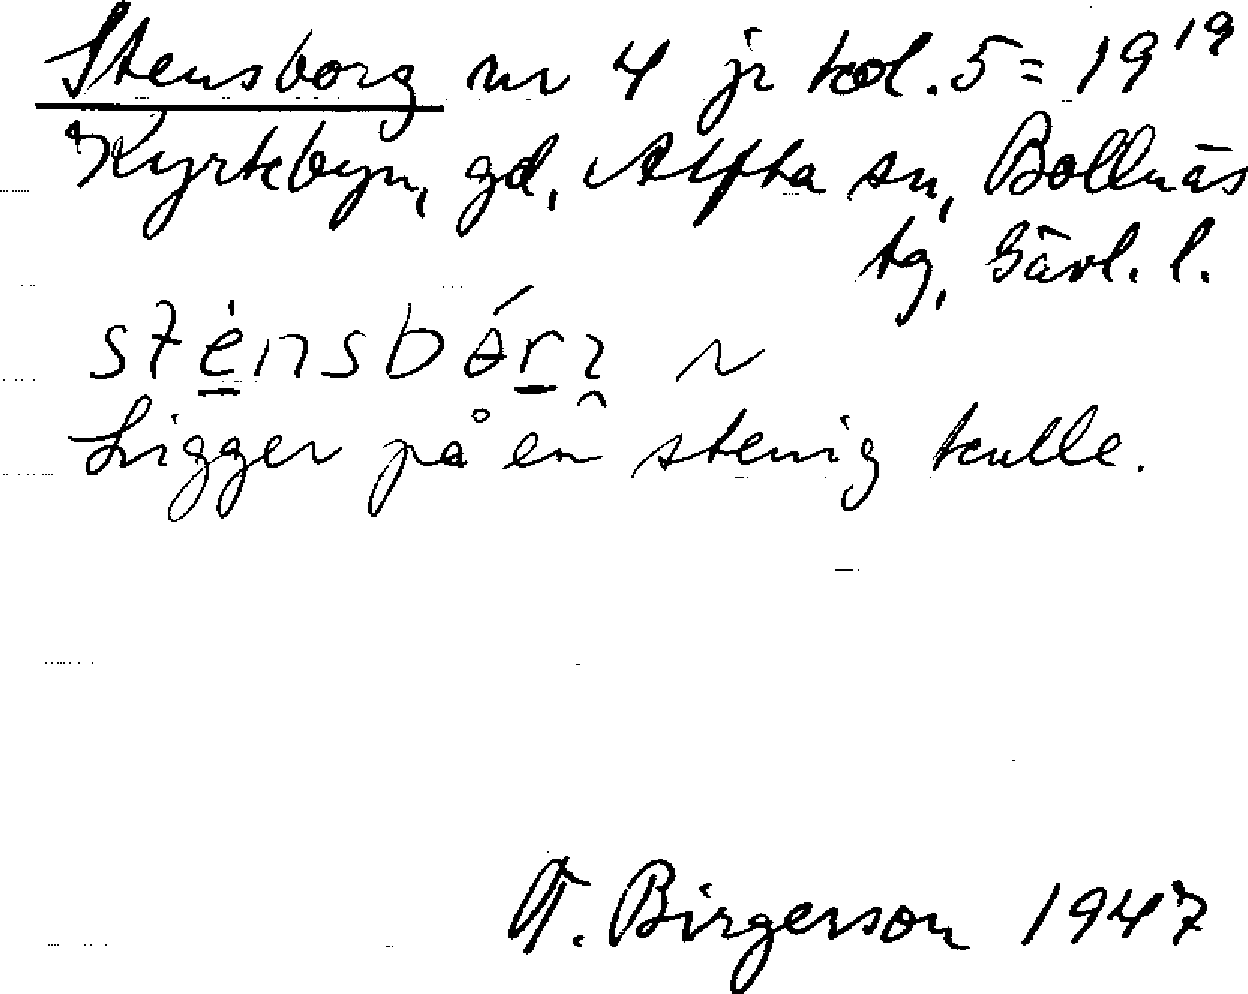 Stensborg nr 4 jr kol. 5 = 19¹⁹
Kyrkbyn, gd, Alfta sn, Bollnäs
tg, Gävl. l.
sténsbórj ~
Ligger på en stenig kulle.
T. Birgerson 1947